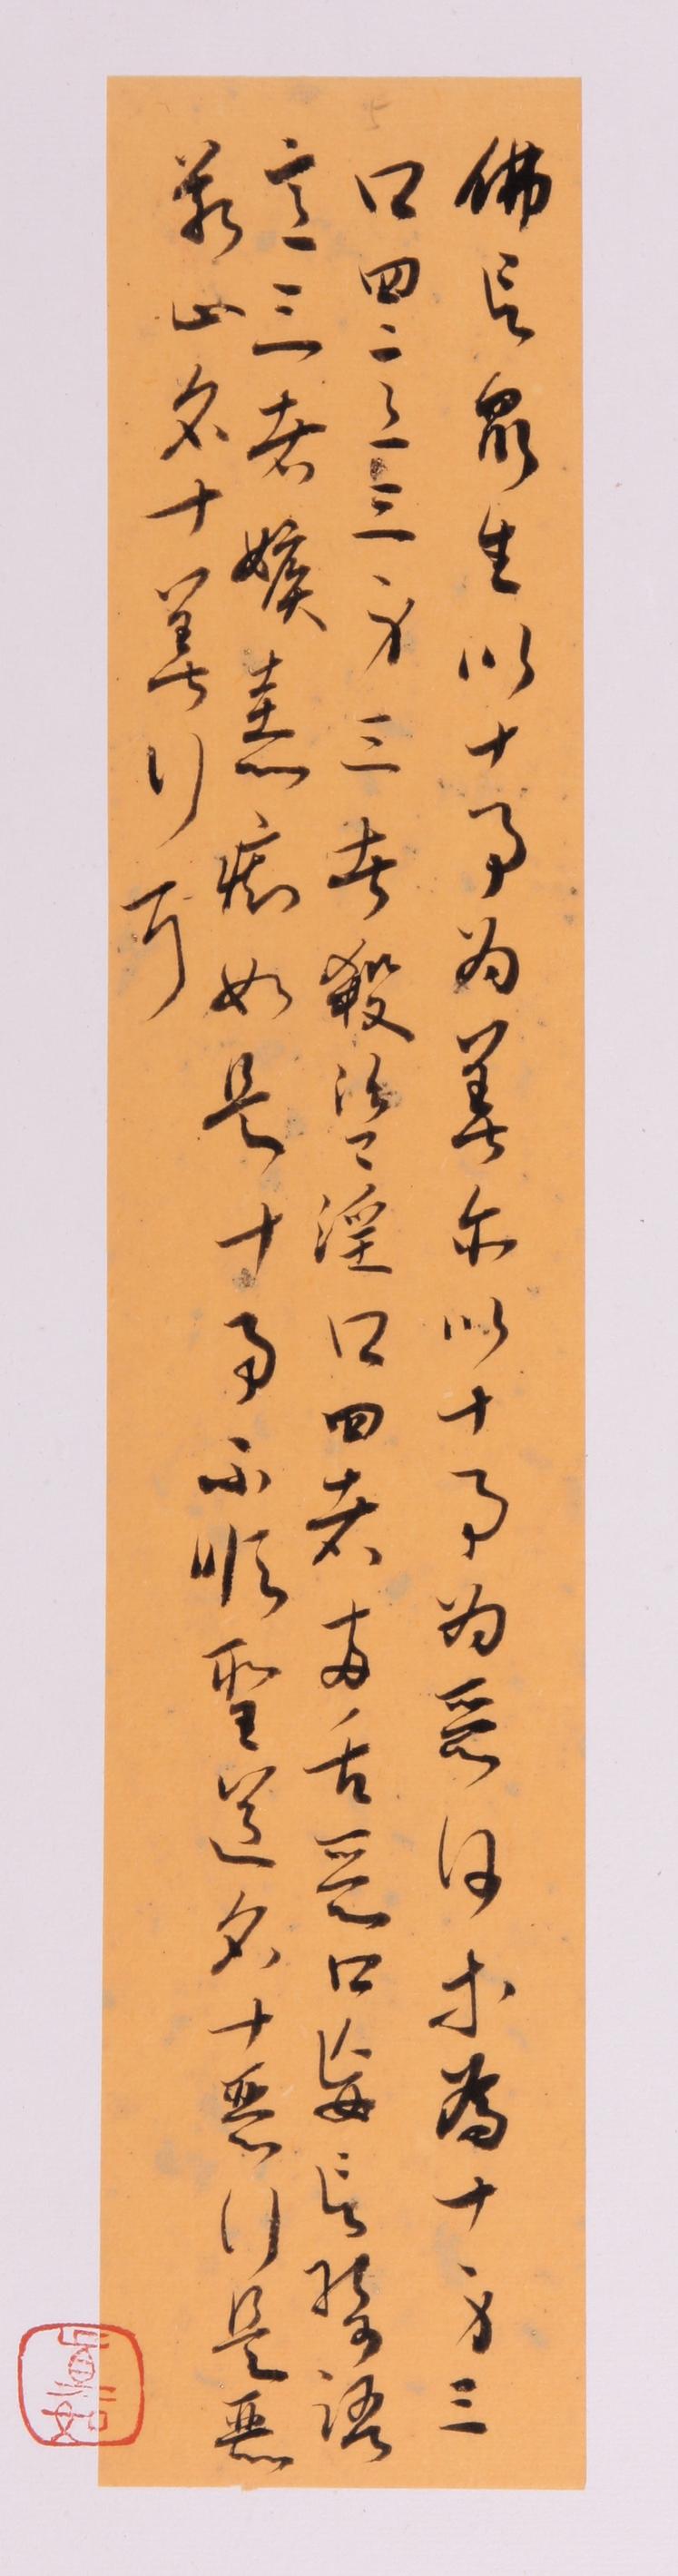 佛言眾生以十事為善亦以十事為惡何等為十身三
口四意三身三者殺盜淫口四者兩舌惡口妄言綺語
意三者嫉恚癡如是十事不順聖道名十惡行是惡
若止名十善行耳
真如